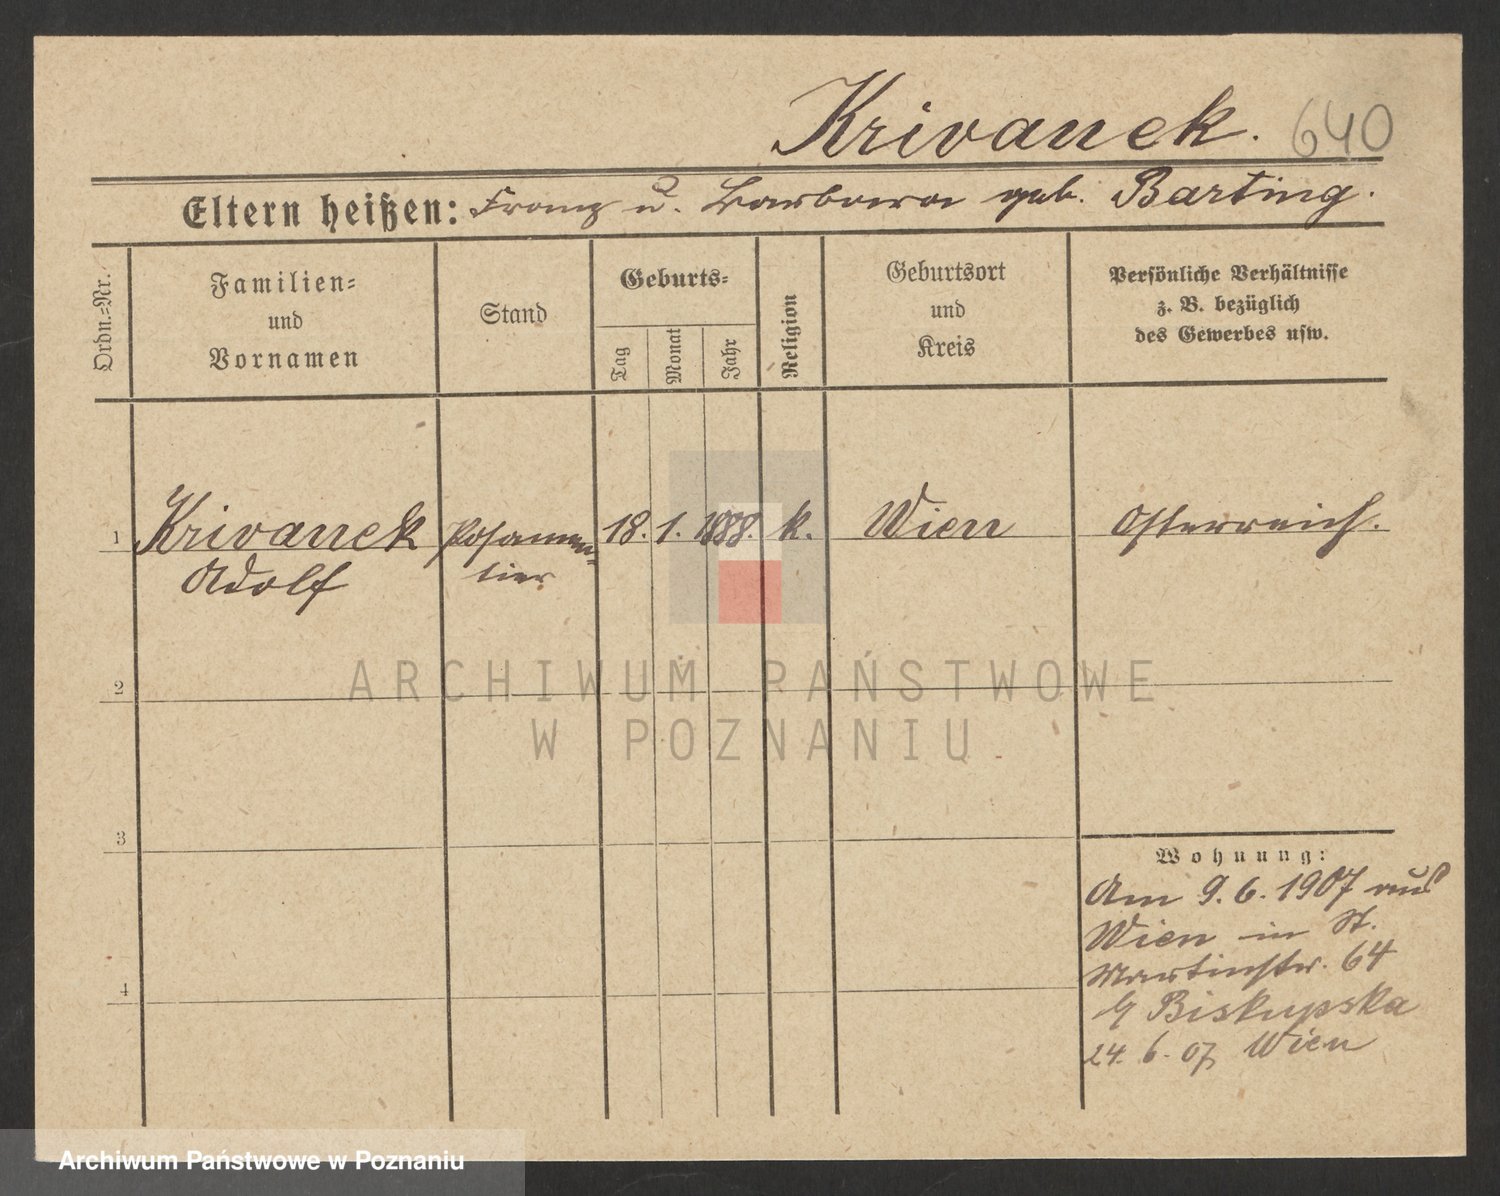 Krivanek. 640
Eltern heißen: Franz u. Barbara geb. Barting.
Ordn.=Nr.
Familien=
und
Vornamen
Stand
Geburts=
Tag
Monat
Jahr
Religion
Geburtsort
und
Kreis
Persönliche Verhältnisse
z. B. bezüglich
des Gewerbes usw.
1 Krivanek Posamen= 18. 1. 1888. k. Wien Osterreich.
Adolf tier
2
3
4
Wohnung:
Am 9. 6. 1907 aus
Wien in St.
Martinstr. 64
b/ Biskupska
24. 6. 07 Wien
ARCHIWUM PAŃSTWOWE
W POZNANIU
Archiwum Państwowe w Poznaniu